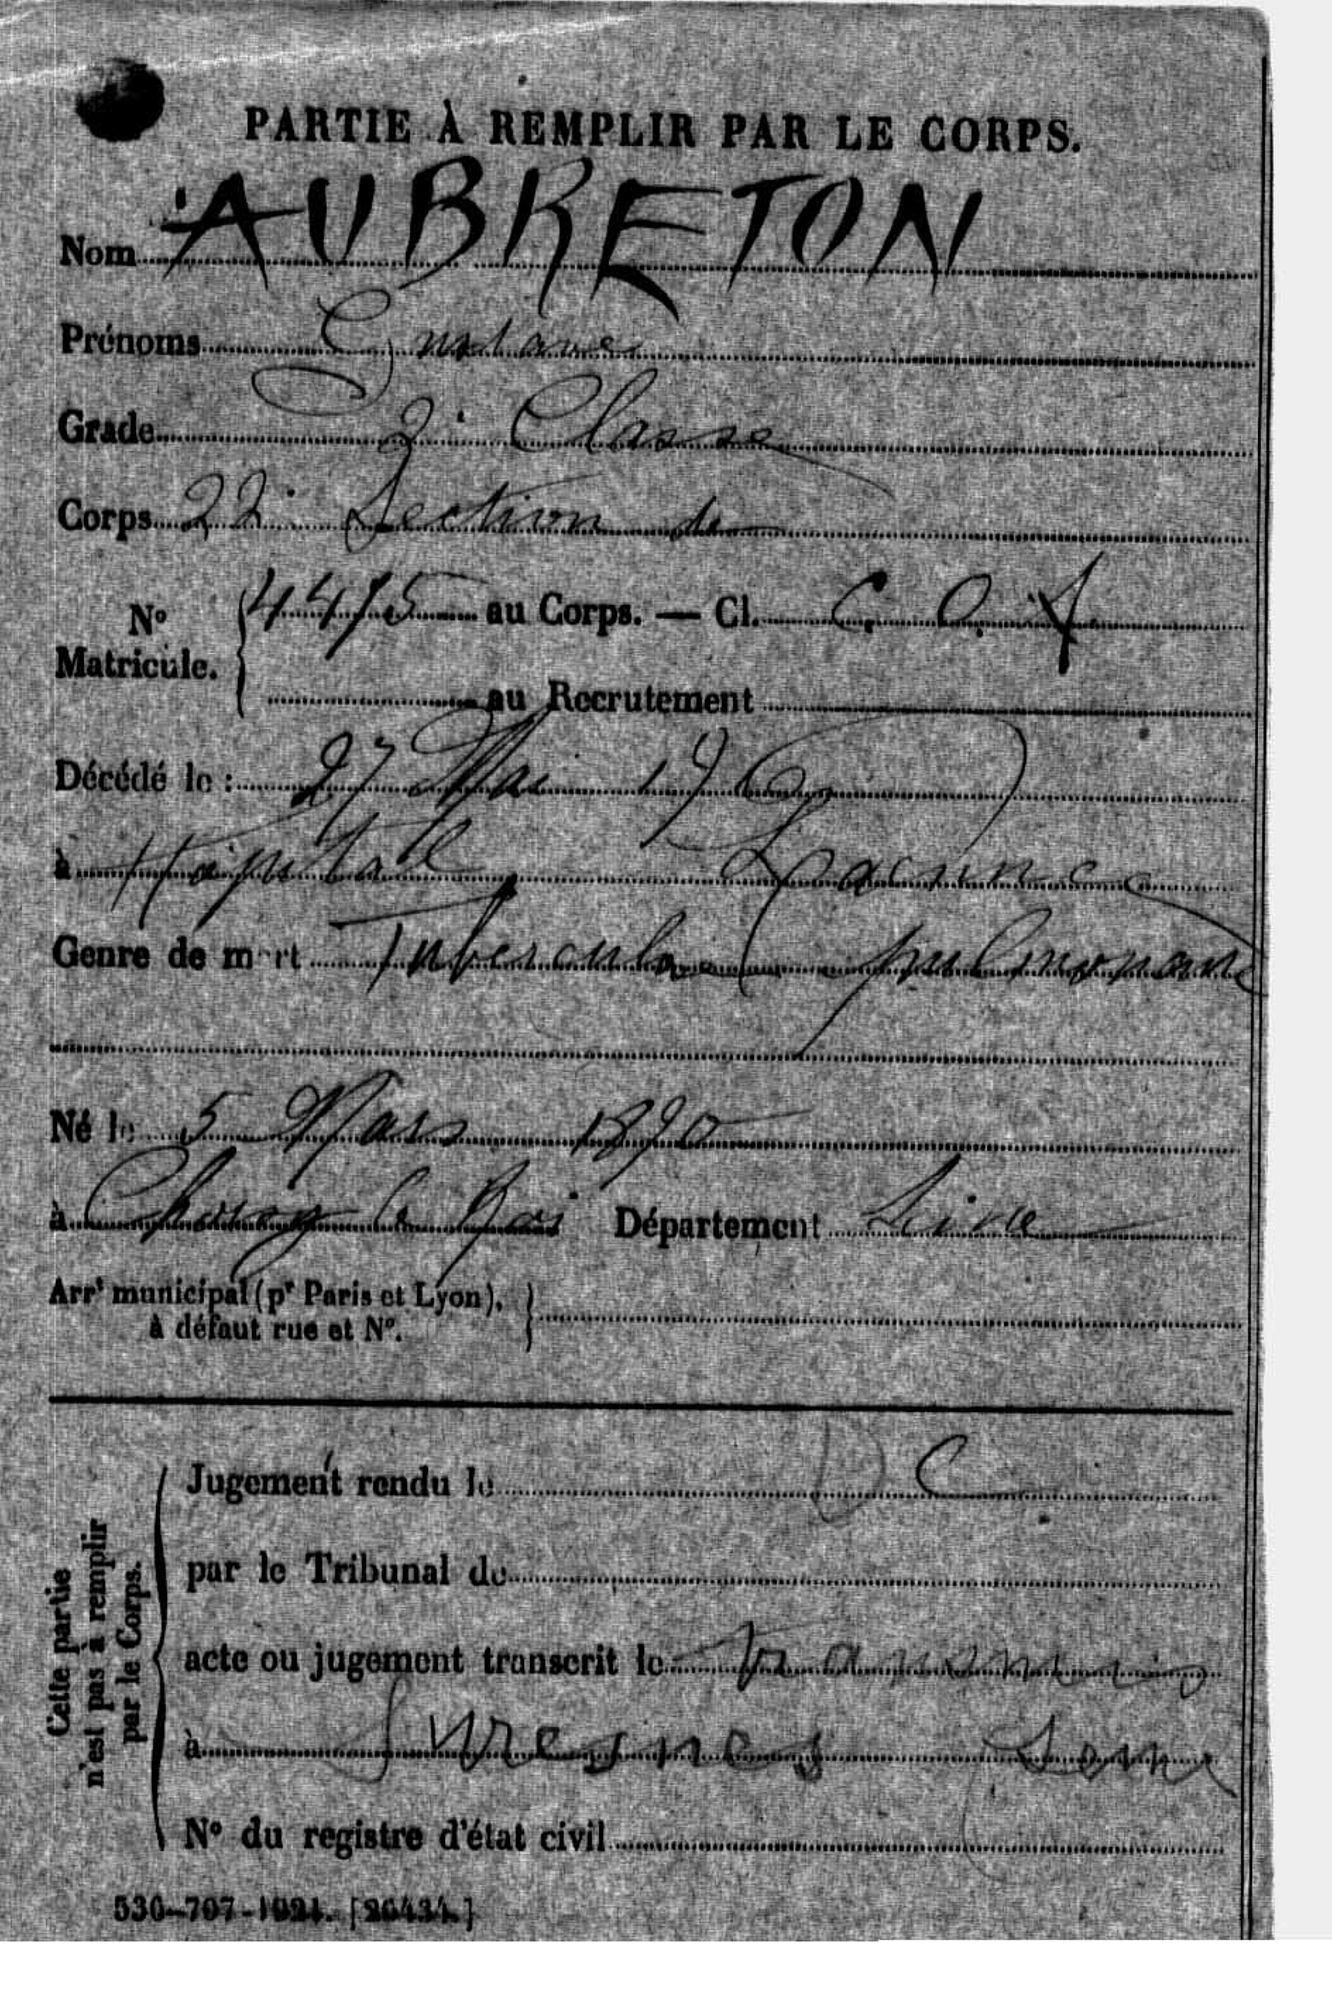 PARTIE À REMPLIR PAR LE CORPS.
Nom AUBRETON
Prénoms Gustave
Grade 2e Classe
Corps 22e Section de
No Matricule. 4475 au Corps. — Cl. C. O. A.
au Recrutement
Décédé le : 27 Mai 19
à Hôpital
Genre de mort Tuberculose pulmonaire
Né le 5 Mars 1890
à Choisy le Roi Département Seine
Arrt municipal (pr Paris et Lyon), à défaut rue et No.
Cette partie n'est pas à remplir par le Corps.
Jugement rendu le DC
par le Tribunal de
acte ou jugement transcrit le transmis
à Suresnes Seine
No du registre d'état civil
530-707-1921. [26434.]